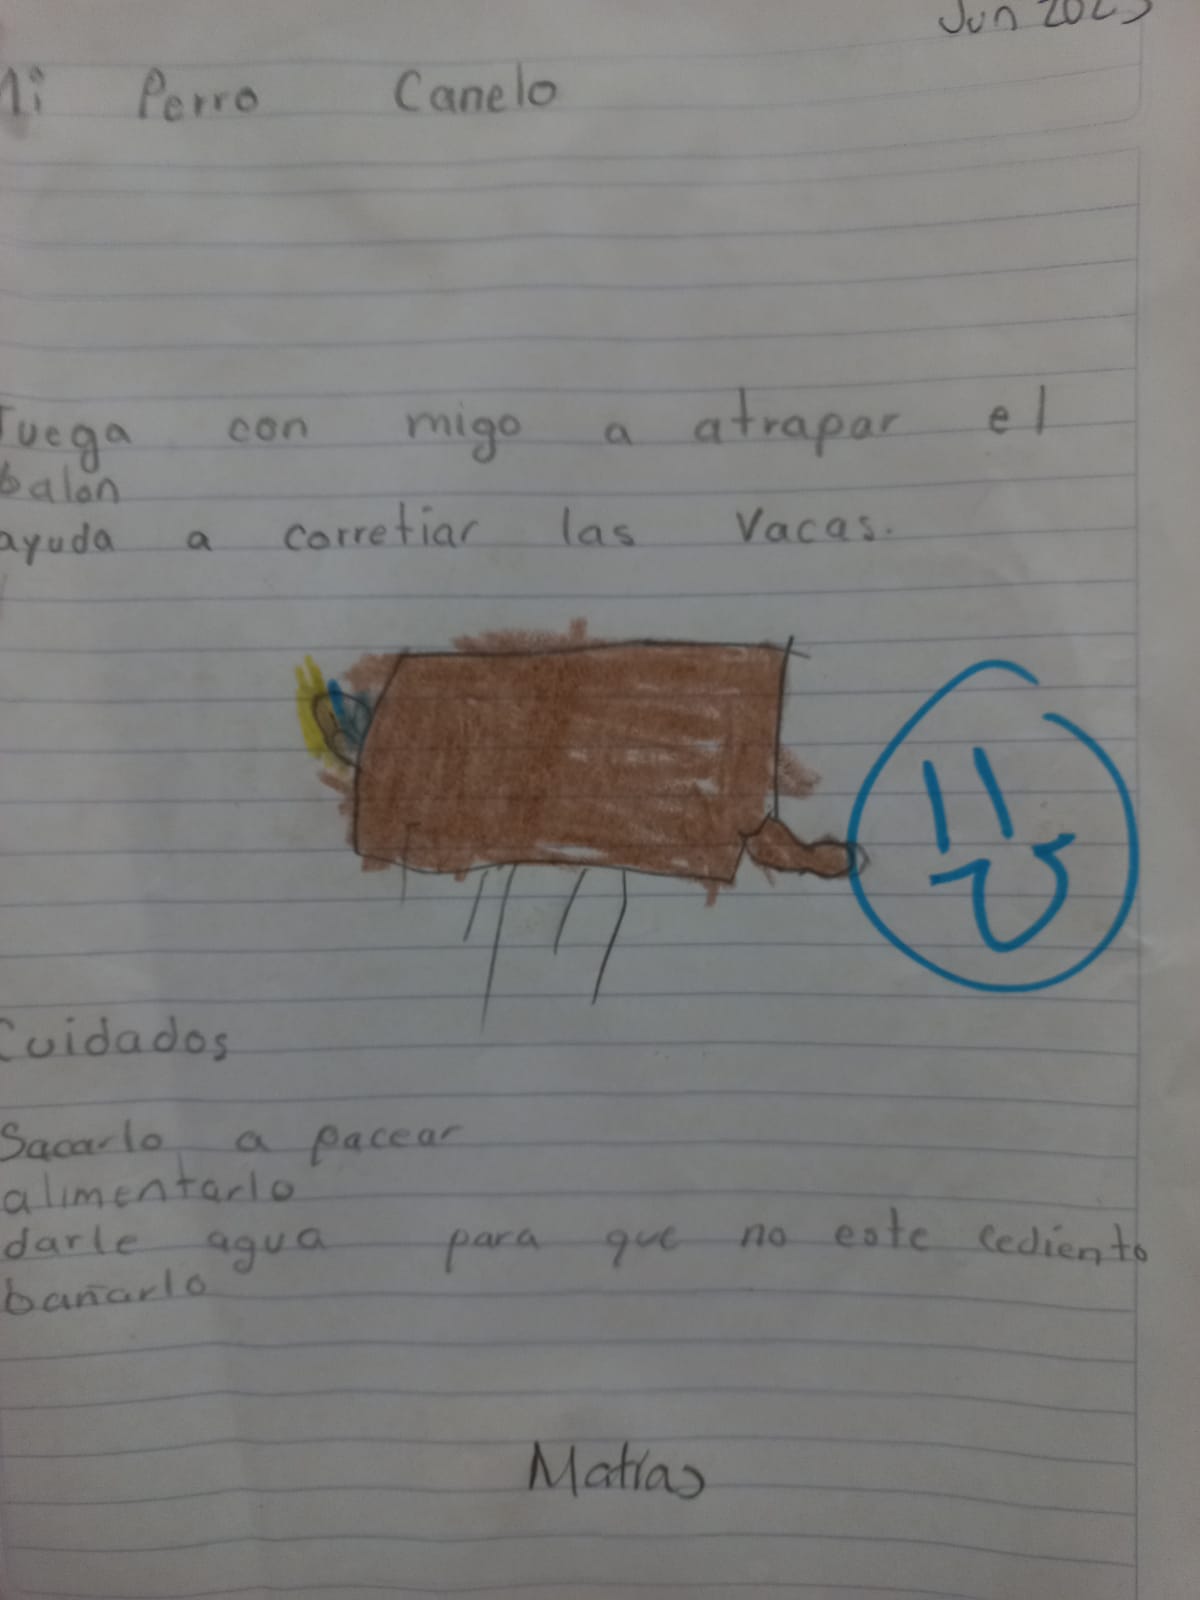 Jun 2023
Mi Perro Canelo
Juega con migo a atrapar el
balon
ayuda a corretiar las vacas.
Cuidados
Sacarlo a pacear
alimentarlo
darle agua para que no este cediento
bañarlo
Matías